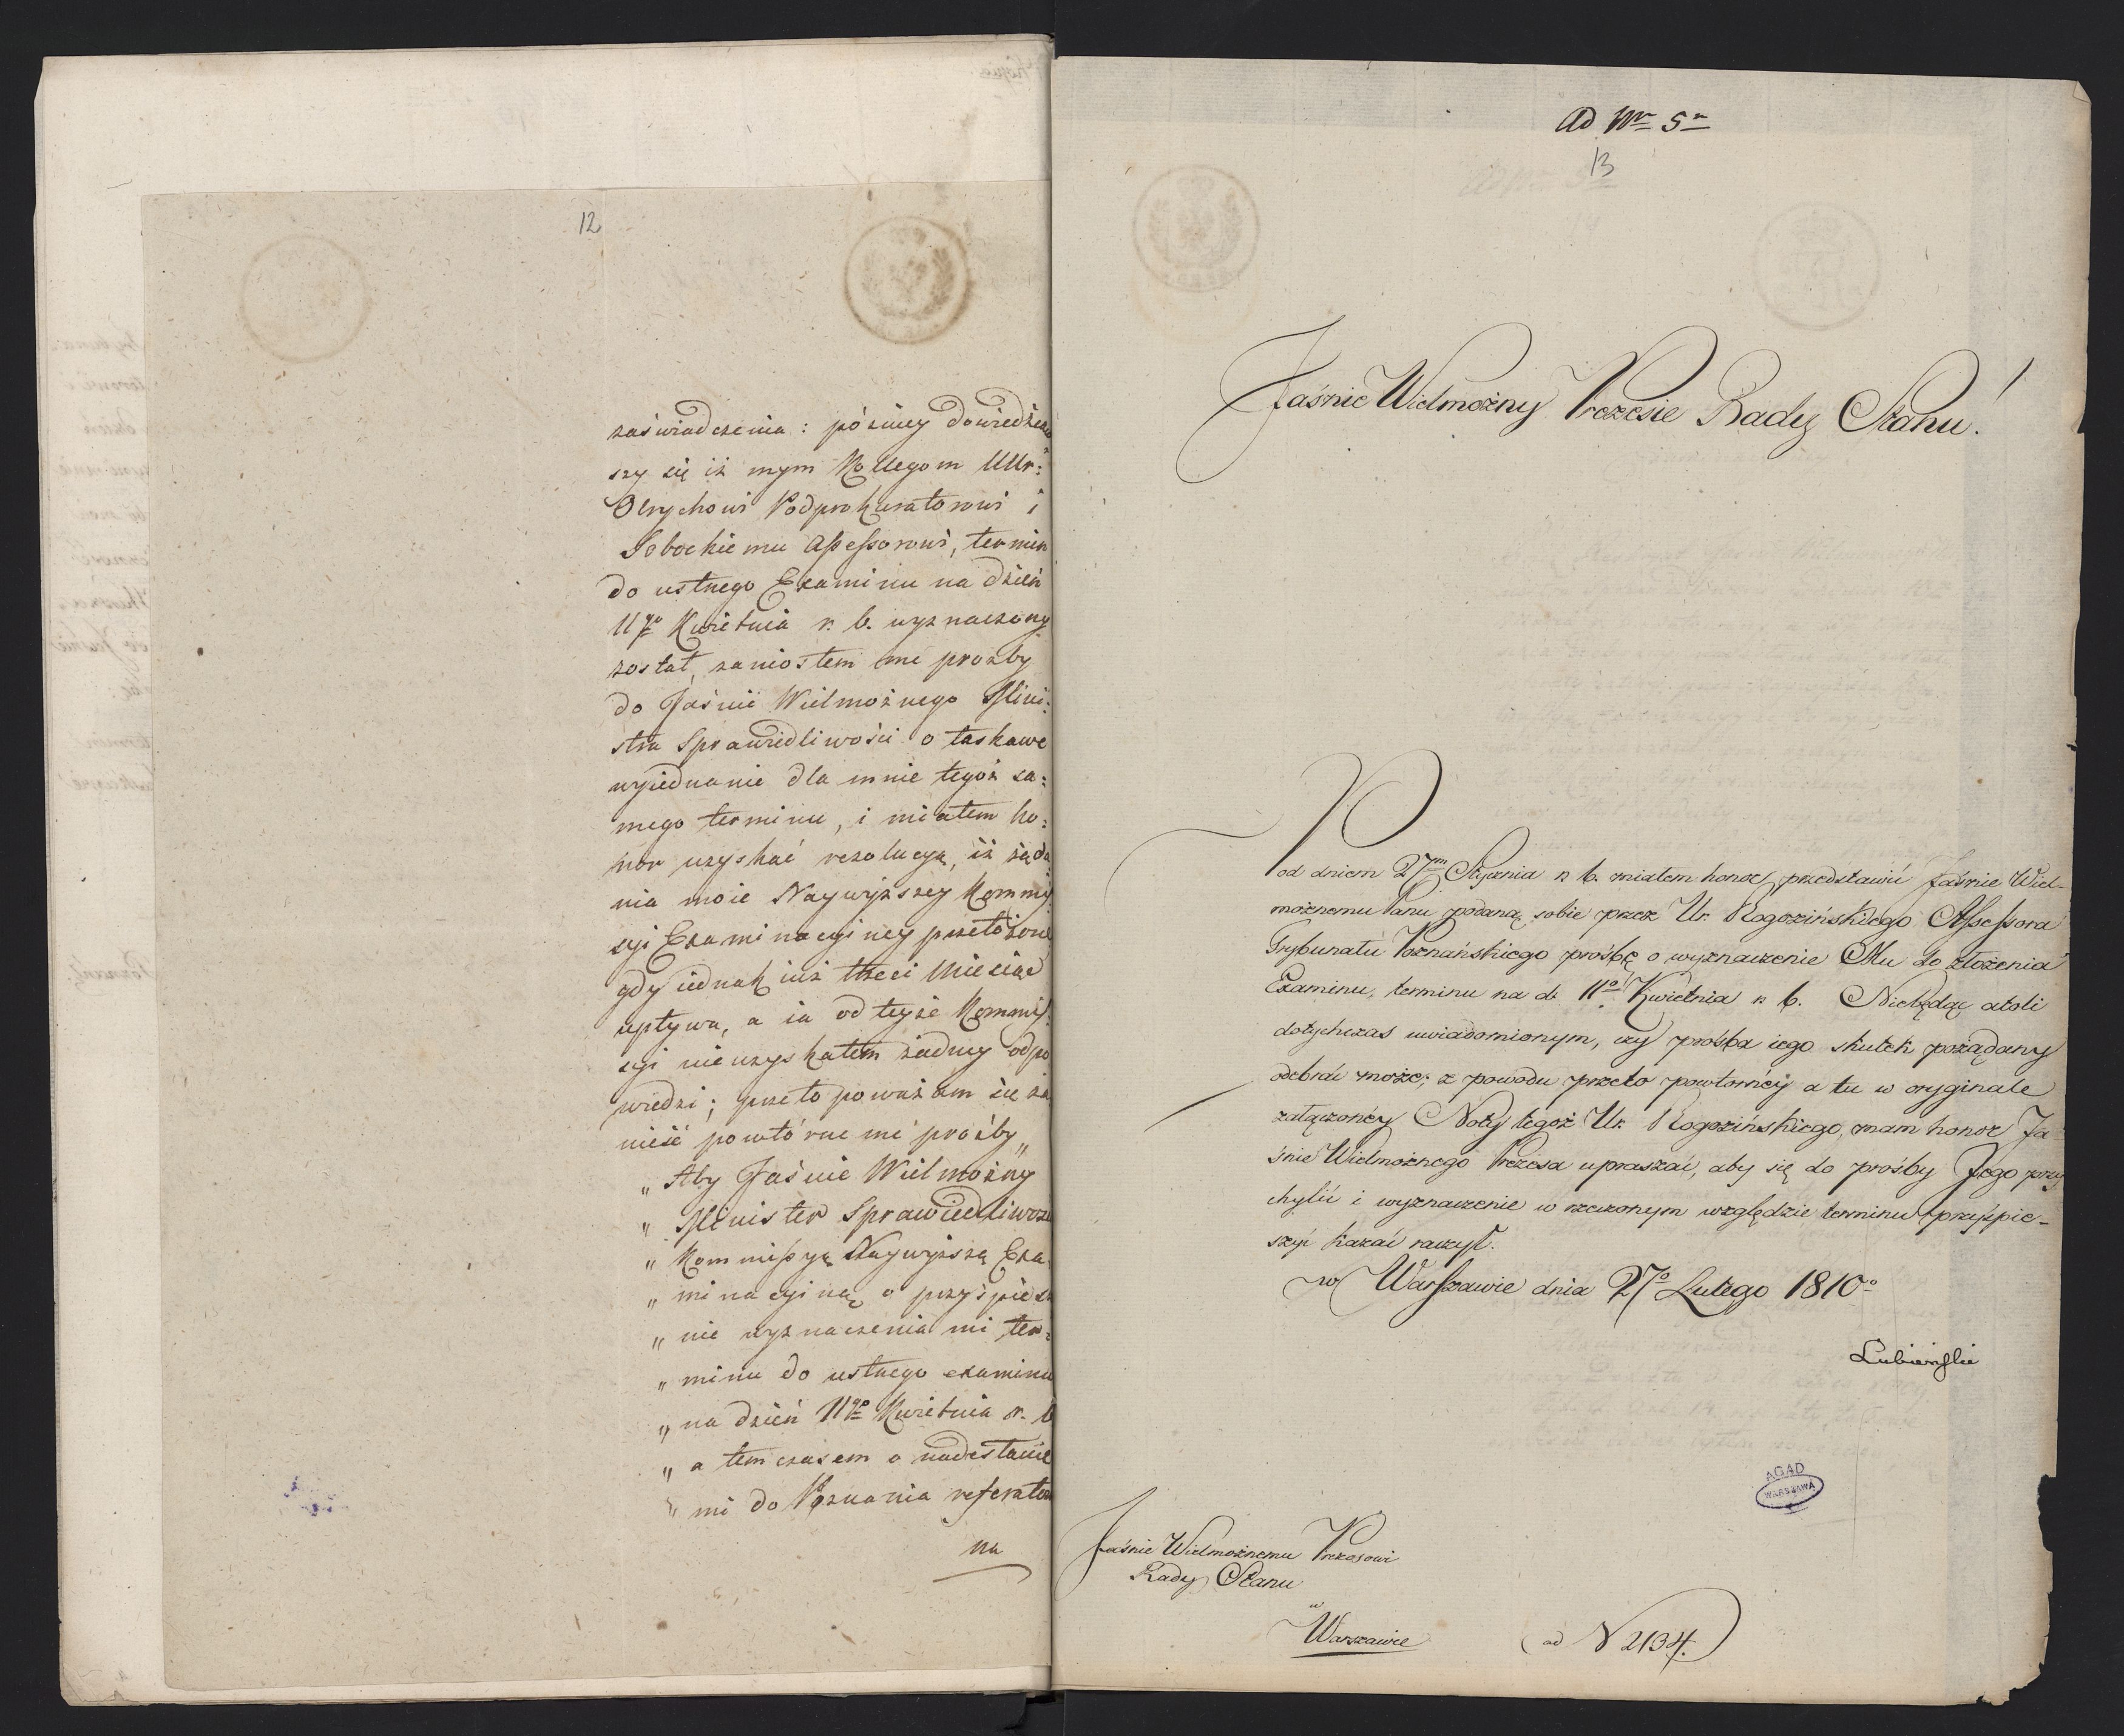 12
zaświadczenia: pózniey dowiedziaw
szy się iż mym Kollegom UUr:
Olrychowi Podprokuratorowi i
Sobockiemu Assessorowi, termin
do ustnego Examinu na dzień
11go Kwietnia r. b. wyznaczony
został, zaniosłem me prozby
do Jaśnie Wielmożnego Mini:
stra Sprawiedliwości o łaskawe
wyiednanie dla mnie tegoż sa:
mego terminu, i miałem ho:
nor uzyskać rezolucyą, iż żąda
nia moie Naywyższey Kommis
syi Examinacyiney przełożone
gdy iednak iuż trzeci Miesiąc
upływa, a ia od teyże Kommis:
syi nie uzyskałem żadney odpo
wiedzi; przeto poważam się za
nieść powtórne me prośby„
„ Aby Jaśnie Wielmożny
„ Minister Sprawiedliwości
„ Kommissyą Naywyższą Exa:
„ minacyiną o przyśpiesze
„ nie wyznaczenia mi ter:
„ minu do ustnego examinu
„ na dzień 11go Kwietnia r. b
„ a tem czasem o nadesłanie
„ mi do Poznania referatów
na
Ad Nr 5
13
Jaśnie Wielmożny Prezesie Rady Stanu!
Pod dniem 27m Stycznia r. b. miałem honor przedstawić Jaśnie Wiel-
możnemu Panu podaną sobie przez Ur. Rogozińskiego Assessora
Trybunału Poznańskiego prośbę o wyznaczenie Mu do złożenia
Examinu, terminu na d. 11o Kwietnia r. b. Niebędąc atoli
dotychczas uwiadomionym, czy prośba iego skutek pożądany
odebrać może; z powodu przeto powtornéy a tu w oryginale
załączonéy Noty tegoż Ur. Rogozińskiego, mam honor Ja-
śnie Wielmożnego Prezesa upraszać, aby się do prośby Jego przy
chylić i wyznaczenie w rzeczonym względzie terminu przyśpie-
szyć kazać raczył.
w Warszawie dnia 27o Lutego 1810o
Lubieński
AGAD
WARSZAWA
Jaśnie Wielmożnemu Prezesowi
Rady Stanu
w
Warszawie
(ad N 2134.)